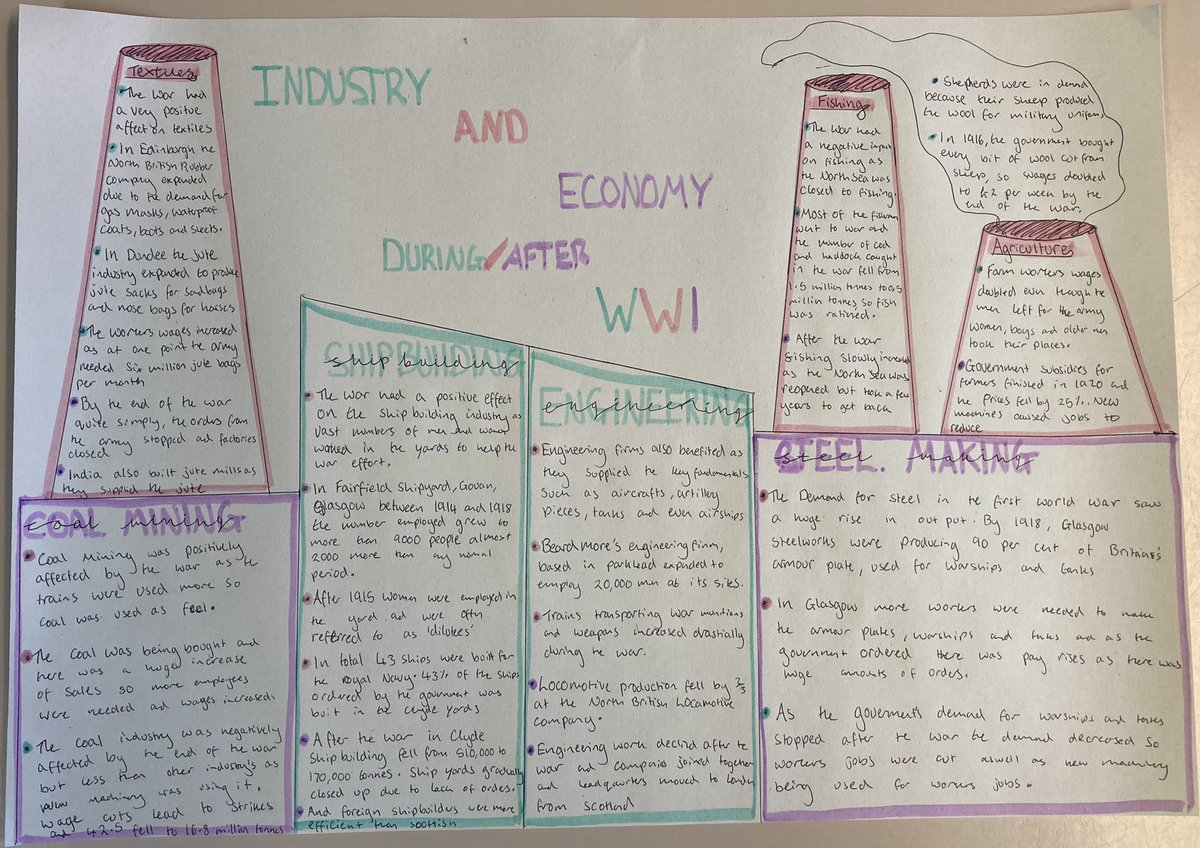 INDUSTRY
AND
ECONOMY
DURING/AFTER
WWI
Textiles
The war had
a very positive
affect on textiles
In Edinburgh the
North British Rubber
company expanded
due to the demand for
gas masks, waterproof
coats, boots and
In Dundee the jute
industry expanded to produce
jute sacks for sandbags
and nose bags for horses
The workers wages increased
as at one point the army
needed six million jute bags
per month
By the end of the war
quite simply, the orders from
the army stopped and factories
closed
India also built jute mills as
they supplied the jute
COAL MINING
coal mining
Coal Mining was positively
affected by the war as the
trains were used more so
coal was used as feel.
The coal was being bought and
there was a huge increase
of sales so more employees
were needed and wages increased.
The coal industry was negatively
affected by the end of the war
but less than other industry's as
machinery was using it.
wage cuts lead to strikes
and 42.5 fell to 16.8 million tonnes
SHIPBUILDING
ship building
The war had a positive effect
on the ship building industry as
vast numbers of men and women
worked in the yards to help the
war effort.
In Fairfield Shipyard, Govan,
Glasgow between 1914 and 1918
the number employed grew to
more than 9000 people almost
2000 more than any normal
period.
After 1915 women were employed in
the yard and were often
referred to as 'dilotees'
In total 43 ships were built for
the royal Navy. 43% of the ships
ordered by the government was
built in the Clyde yards
After the war in Clyde
Ship building fell from 510,000 to
170,000 tonnes. Ship yards gradually
closed up due to lack of orders.
And foreign shipbuilders were more
efficient than scottish
ENGINEERING
engineering
Engineering firms also benefited as
they supplied the key fundamentals
such as aircrafts, artillery
pieces, tanks and even airships
Beardmore's engineering firm,
based in parkhead expanded to
employ 20,000 men at its sites.
Trains transporting war munitions
and weapons increased drastially
during the war.
Locomotive production fell by 2/3
at the North British Locomotive
company.
Engineering work declind after the
war and companies joined together
and headquarters moved to London
from scotland
Fishing
The war had
a negative impact
on fishing as
the North Sea was
closed to fishing.
Most of the fishermen
went to war and
the number of cod
and haddock caught
in the war fell from
1.5 million tonnes to 0.5
million tonnes so fish
was rationed.
After the war
fishing slowly increased
as the North Sea was
reopened but took a few
years to get back
Shepherds were in demand
because their sheep produced
the wool for military uniforms
In 1916, the government bought
every bit of wool cut from
sheep, so wages doubled
to £2 per week by the
end of the war.
Agriculture
Farm workers wages
doubled even though the
men left for the army
women, boys and older men
took their places.
Government subsidies for
farmers finished in 1920 and
the prices fell by 25%. New
machines caused jobs to
reduce
STEEL. MAKING
steel making
The Demand for steel in the first world war saw
a huge rise in output. By 1918, Glasgow
steelworks were producing 90 per cent of Britains's
armour plate, used for warships and tanks
In Glasgow more workers were needed to make
the armour plates, warships and tanks and as the
government ordered there was pay rises as there was
huge amounts of orders.
As the goverment's demand for warships and tanks
stopped after the war the demand decreased so
workers jobs were cut aswell as new machinery
being used for workers jobs.